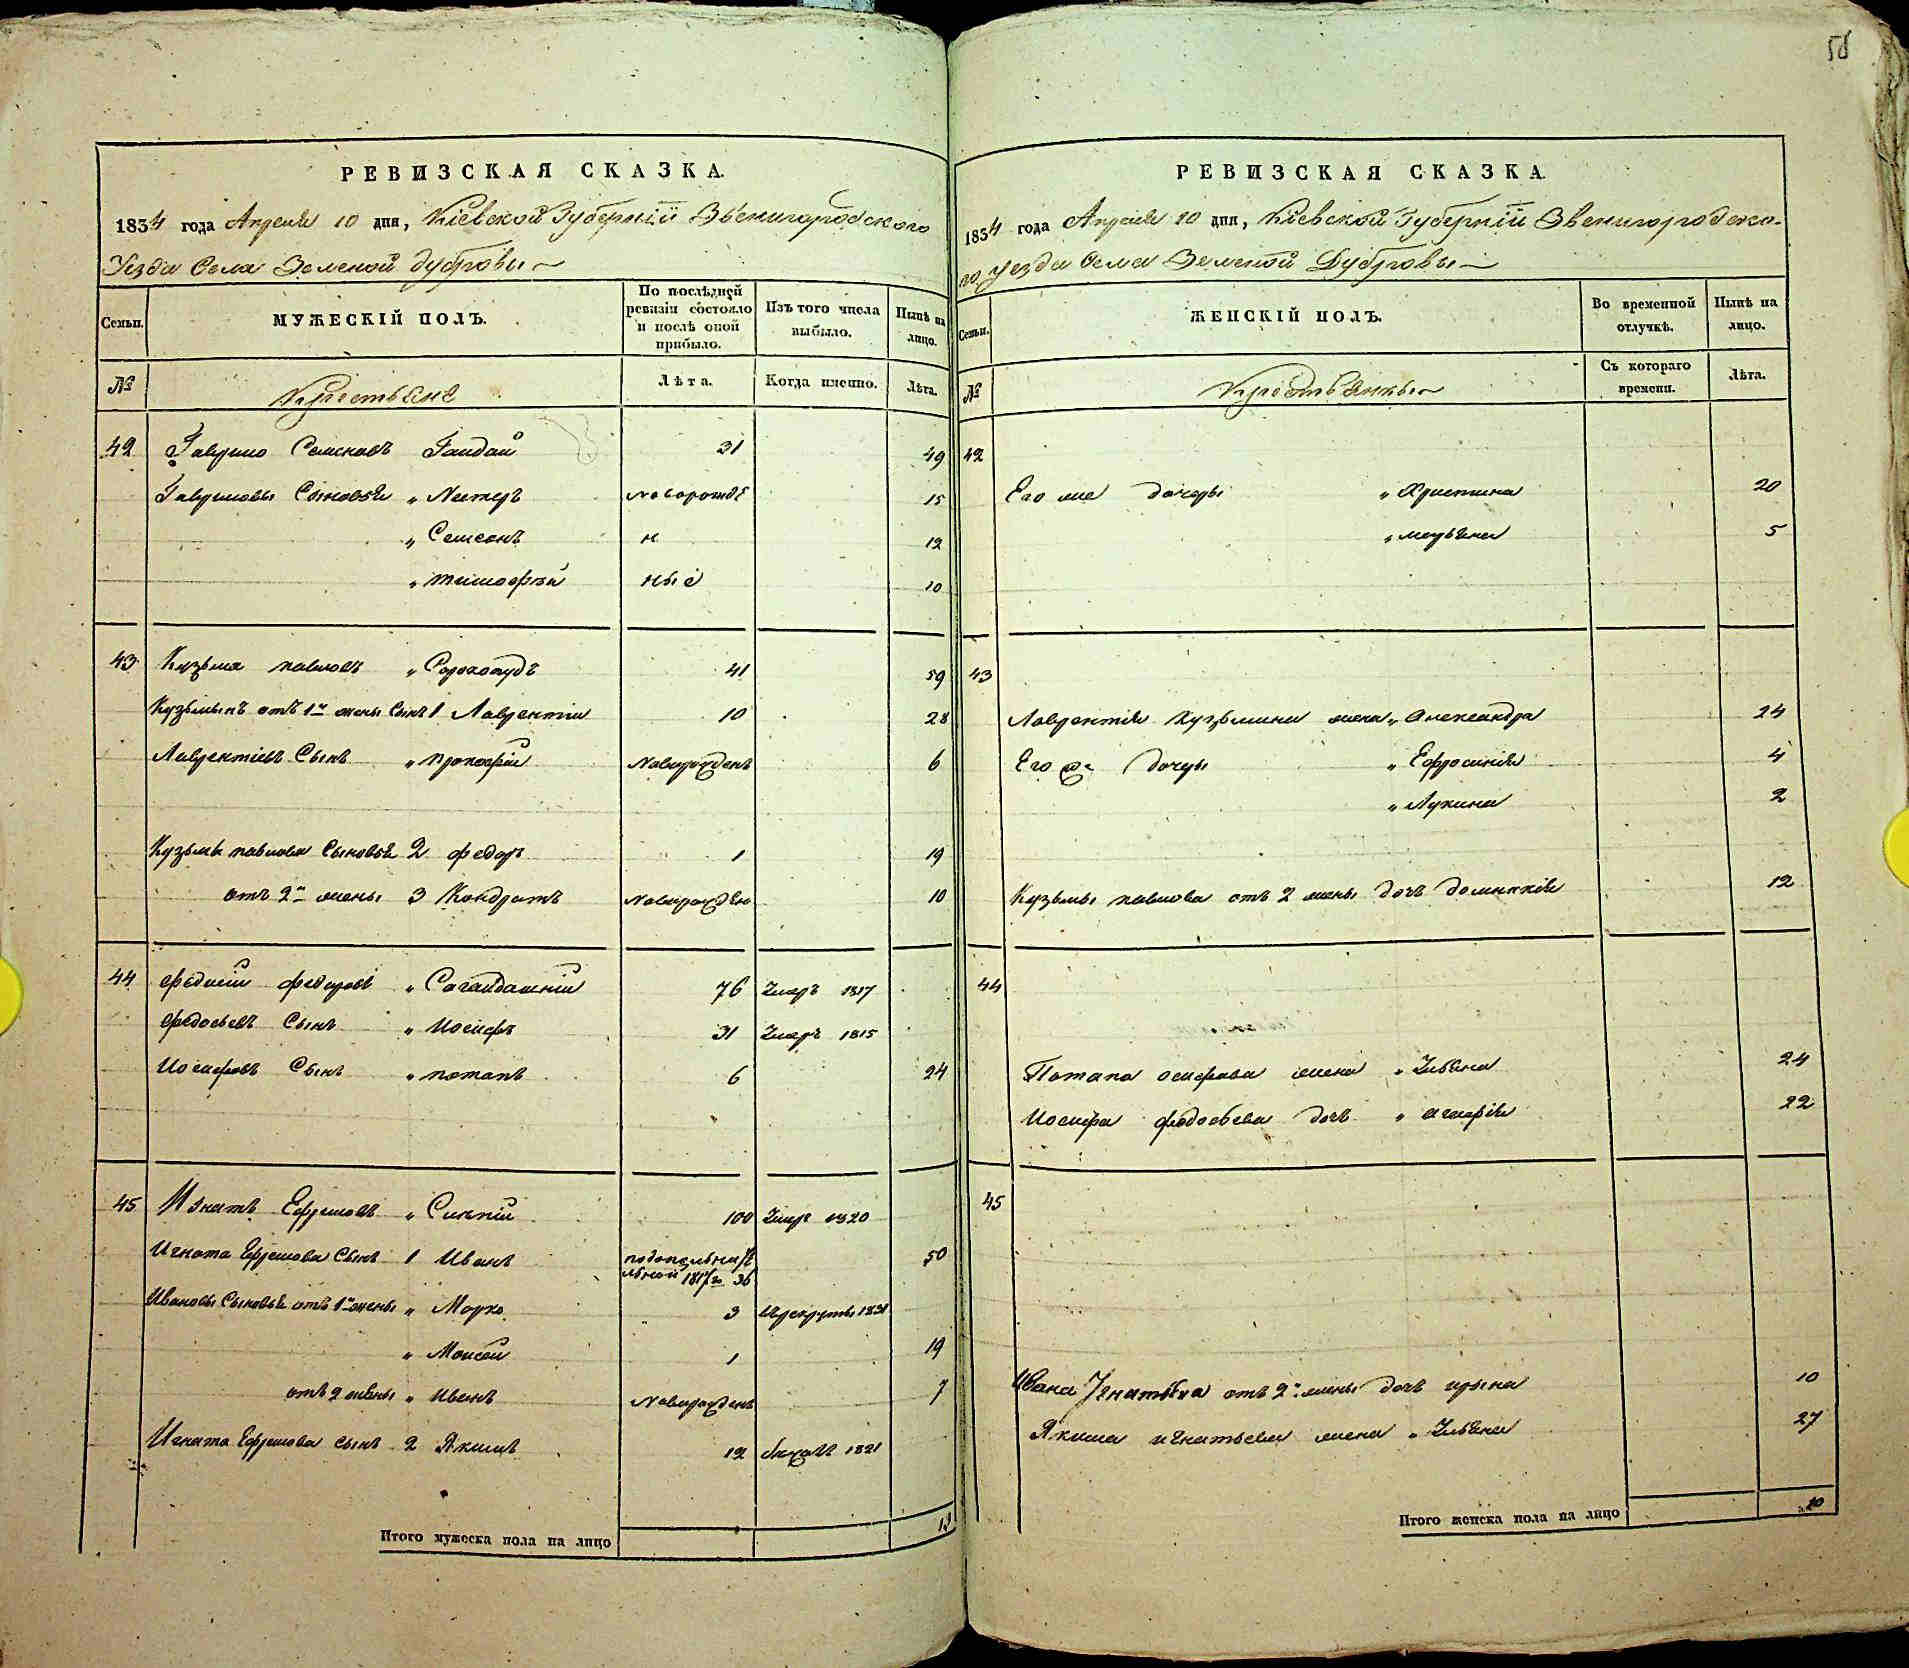 58
РЕВИЗСКАЯ СКАЗКА.
1834 года Апреля 10 дня, Кіевской Губерніи Звенигородского
Уезда Села Зеленой дубровы
Семьи. МУЖЕСКІЙ ПОЛЪ. По послѣдней ревизіи состояло и послѣ оной прибыло. Изъ того числа выбыло. Нынѣ на лицо.
№ Крестьяне Лѣта. Когда именно. Лѣта.
42 Гаврило Семеновъ Гайдай 31 49
Гавриловы Сыновья " Нестеръ новорожде 15
" Семенъ н 12
" тимофей ные 10
43 Кузьма павловъ " 41 59
Кузьминъ отъ 1й жены Сынъ 1 Лаврентій 10 28
Лаврентіевъ Сынъ " прокофій Новорожденъ 6
Кузьмы павлова Сыновья 2 федоръ 1 19
отъ 2й жены 3 Кондратъ новорожден 10
44 федосій федоровъ " Сагайдашній 76 Умеръ 1817
федосѣевъ Сынъ " Иосифъ 31 Умеръ 1815
Иосифовъ Сынъ " потапъ 6 24
45 Игнатъ Ефремовъ " Синній 100 Умеръ 1820
Игната Ефремова Сынъ 1 Иванъ 36 50
Ивановы Сыновья отъ 1й жены " Марко 3 Врекруты 1831
" Моисей 1 19
отъ 2 жены " Иванъ Новорожденъ 7
Игната Ефремова сынъ 2 Якимъ 12 1821
Итого мужеска пола на лицо 13
РЕВИЗСКАЯ СКАЗКА.
1834 года Апреля 10 дня, Кіевской Губерніи Звенигородска-
го уезда Села Зеленой Дубровы
Семьи. ЖЕНСКІЙ ПОЛЪ. Во временной отлучкѣ. Нынѣ на лицо.
№ Крестьянки Съ котораго времени. Лѣта.
42
Его же дочеры " Христина 20
" 5
43
Лаврентія Кузьмина жена " Александра 24
Его же дочеры " Ефросинія 4
" Лукина 2
Кузьмы павлова отъ 2 жены дочь доминикія 12
44
Потапа осифова жена " Ульяна 24
Иосифа федосѣева дочь " 22
45
Ивана Игнатьева отъ 2й жены дочь ирына 10
Якима игнатьева жена " Ульяна 27
Итого женска пола на лицо 10